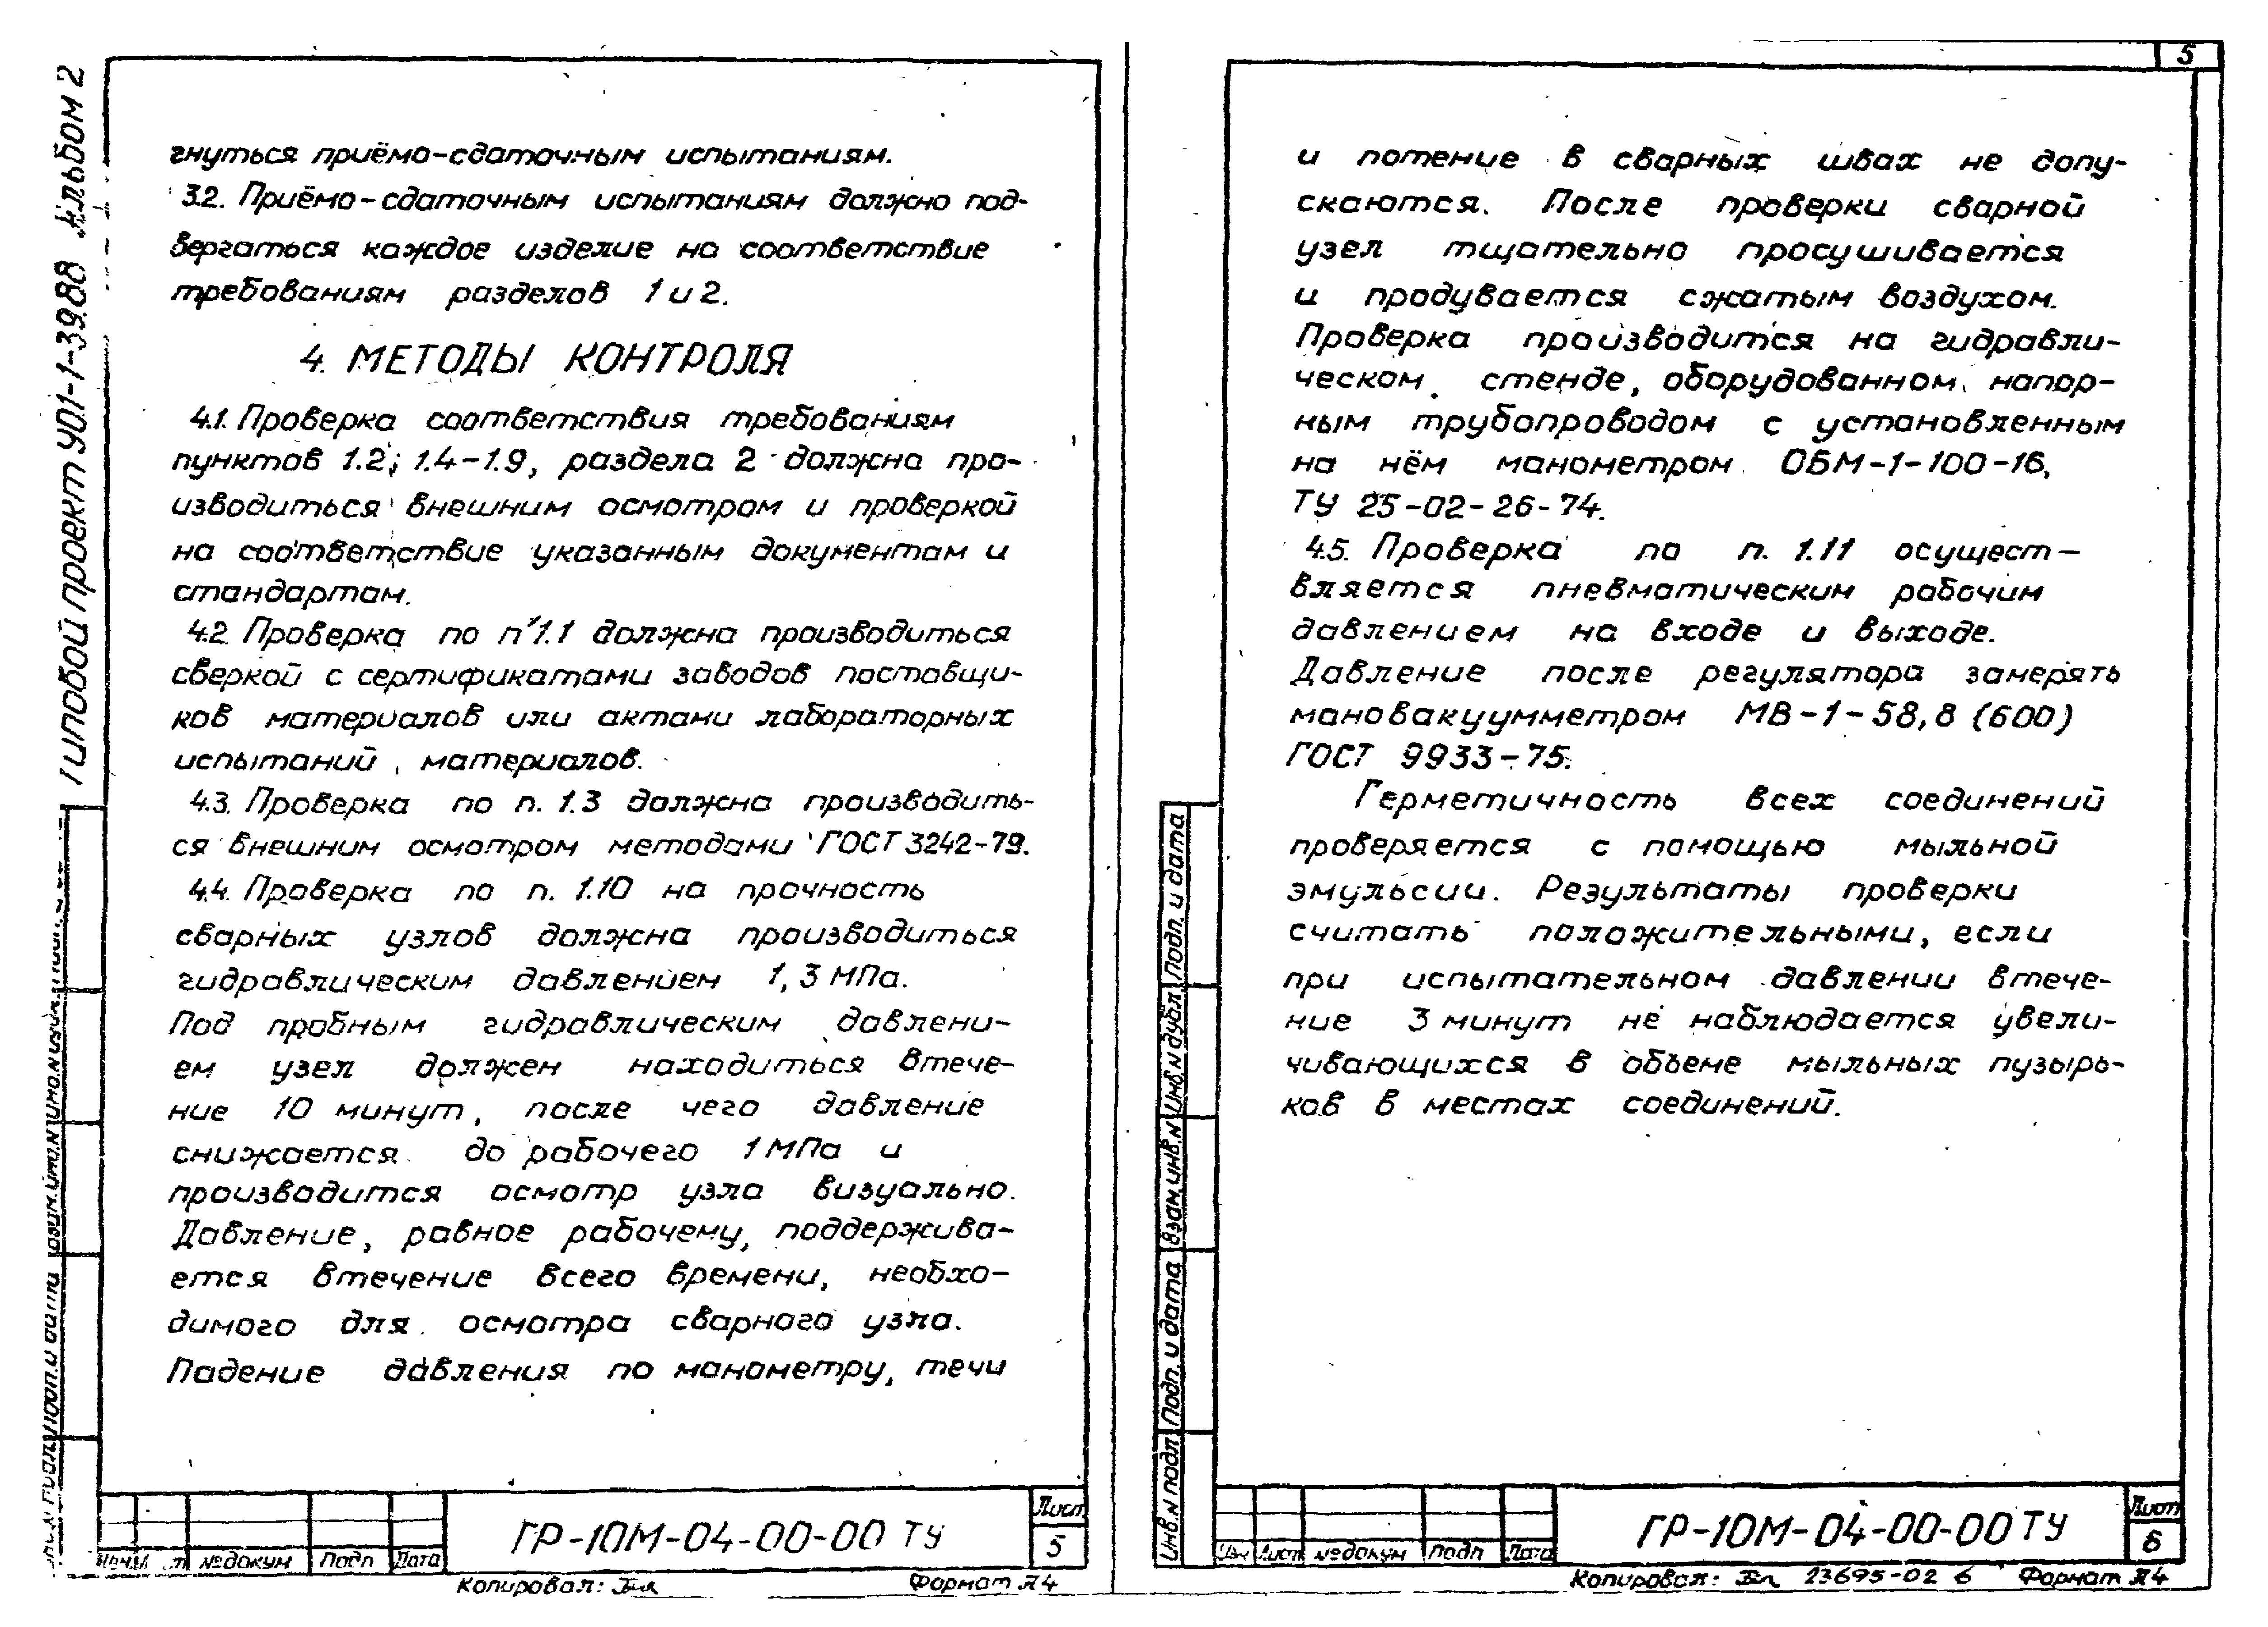 Типовой проект У01-1-39.88 Альбом 2
гнуться приёмо-сдаточным испытаниям.
3.2. Приёмо-сдаточным испытаниям должно под-
вергаться каждое изделие на соответствие
требованиям разделов 1 и 2.
4. МЕТОДЫ КОНТРОЛЯ
4.1. Проверка соответствия требованиям
пунктов 1.2; 1.4-1.9, раздела 2 должна про-
изводиться внешним осмотром и проверкой
на соответствие указанным документам и
стандартам.
4.2. Проверка по п 1.1 должна производиться
сверкой с сертификатами заводов поставщи-
ков материалов или актами лабораторных
испытаний материалов.
4.3. Проверка по п. 1.3 должна производить-
ся внешним осмотром методами ГОСТ 3242-79.
4.4. Проверка по п. 1.10 на прочность
сварных узлов должна производиться
гидравлическим давлением 1,3 МПа.
Под пробным гидравлическим давлени-
ем узел должен находиться втече-
ние 10 минут, после чего давление
снижается до рабочего 1 МПа и
производится осмотр узла визуально.
Давление, равное рабочему, поддержива-
ется втечение всего времени, необхо-
димого для осмотра сварного узла.
Падение давления по манометру, течи
№ докум Подп Дата
ГР-10М-04-00-00 ТУ
Лист
5
Копировал:
Формат А4
5
и потение в сварных швах не допу-
скаются. После проверки сварной
узел тщательно просушивается
и продувается сжатым воздухом.
Проверка производится на гидравли-
ческом стенде, оборудованном напор-
ным трубопроводом с установленным
на нём манометром ОБМ-1-100-16,
ТУ 25-02-26-74.
4.5. Проверка по п. 1.11 осущест-
вляется пневматическим рабочим
давлением на входе и выходе.
Давление после регулятора замерять
мановакуумметром МВ-1-58,8 (600)
ГОСТ 9933-75.
Герметичность всех соединений
проверяется с помощью мыльной
эмульсии. Результаты проверки
считать положительными, если
при испытательном давлении втече-
ние 3 минут не наблюдается увели-
чивающихся в объеме мыльных пузырь-
ков в местах соединений.
Инв.N подл Подп. и дата Взам.инв.N Инв.N дубл. Подп. и дата
Изм Лист № докум Подп Дата
ГР-10М-04-00-00 ТУ
Лист
6
Копировал: 23695-02 6 Формат А4